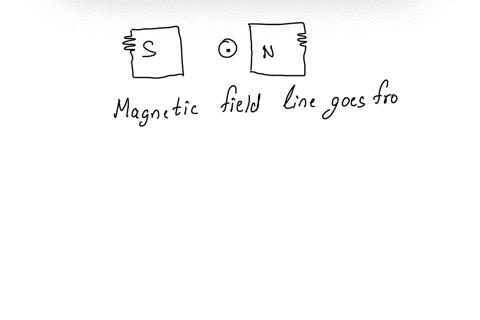 S N
Magnetic field line goes fro